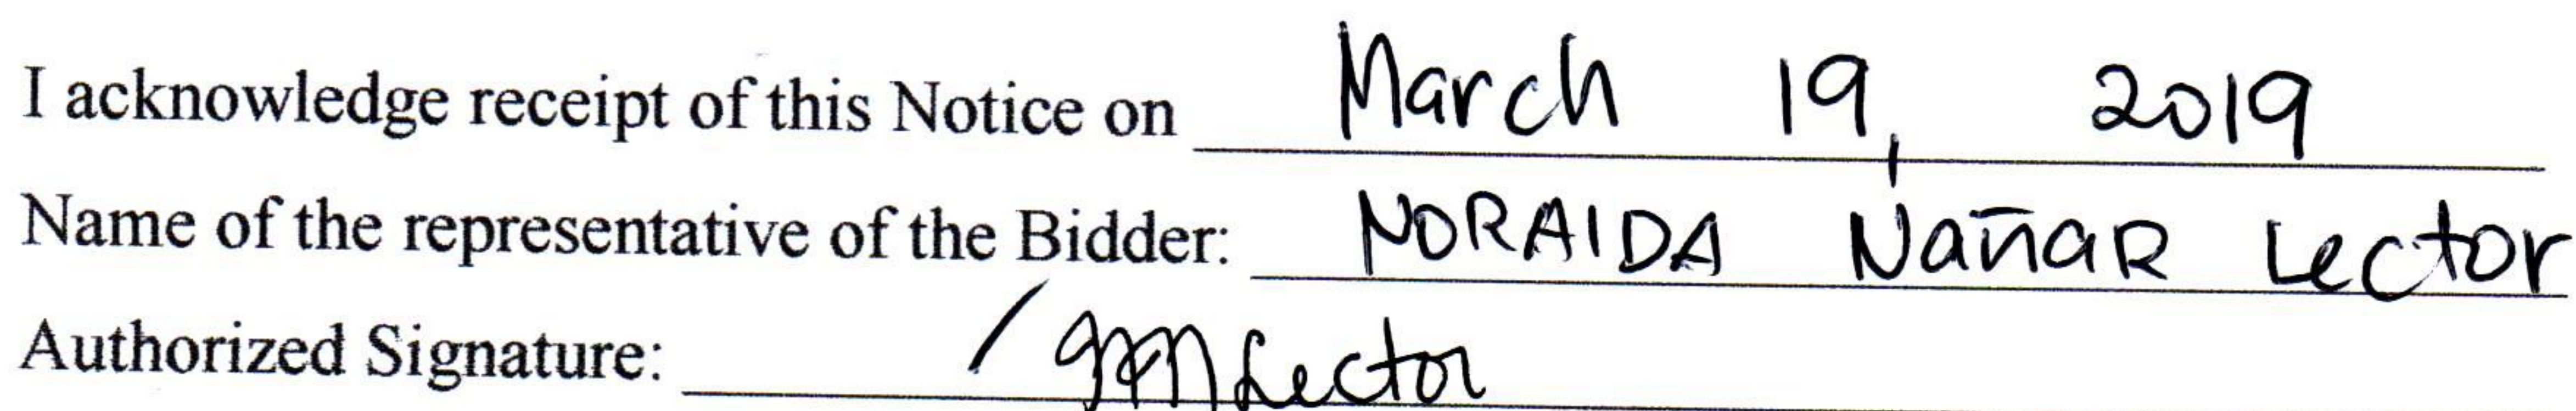 I acknowledge receipt of this Notice on March 19, 2019
Name of the representative of the Bidder: NORAIDA NañaR Lector
Authorized Signature: Lector